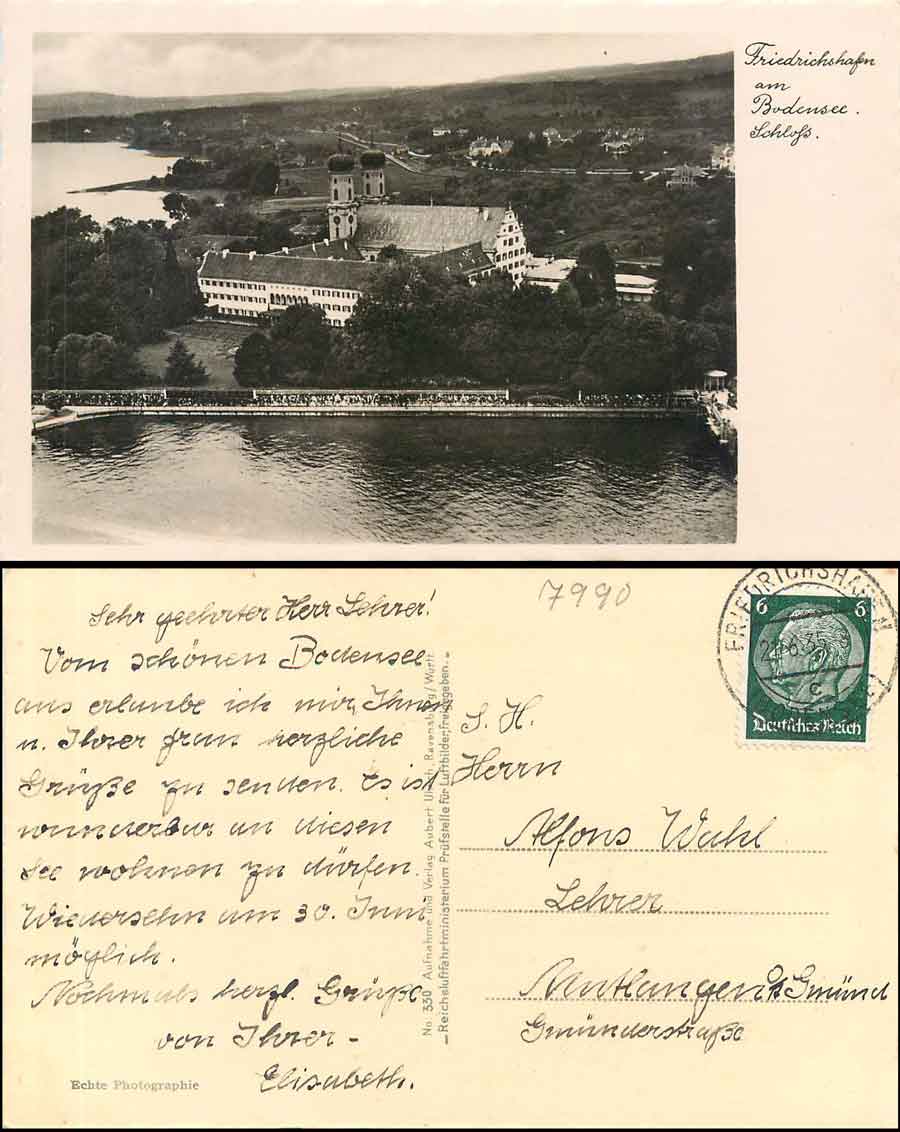 Friedrichshafen
am
Bodensee.
Schloß.
7990
Sehr geehrter Herr Lehrer!
Vom schönen Bodensee
aus erlaube ich mir, Ihnen
u. Ihrer frau herzliche
Grüße zu senden. Es ist
wunderbar an diesen
See wohnen zu dürfen.
Wiedersehn am 30. Juni
möglich.
Nochmals herzl. Grüße
von Ihrer -
Elisabeth.
Echte Photographie
No. 330 Aufnahme und Verlag Aubert Ulrich, Ravensburg/Württ.
Reichsluftfahrtministerium Prüfstelle für Luftbilder, freigegeben.
FRIEDRICHSHAFEN
6.35
c
6 6
Deutsches Reich
S. H.
Herrn
Alfons Wahl
Lehrer
Mutlangen Gmünd
Gmünderstraße